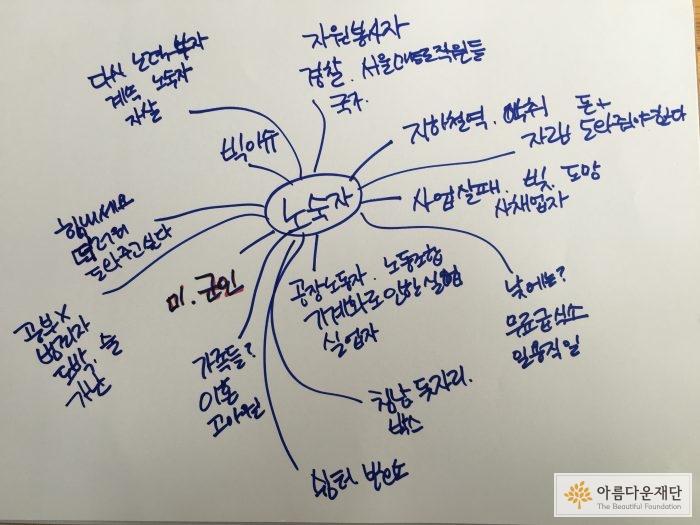 자원봉사자
경찰. 서울메트로직원들
국가.
다시
계속 노숙자
자살
빅이슈
지하철역. 악취 돈+
자립 도와줘야한다
노숙자
사업실패. 빚. 도망
사채업자
힘내세요
더러워
도와주고싶다
미. 군인
공장노동자. 노동조합
기계화로 인한 실험
실업자
낮에는?
무료급식소
일용직 일
공부X
방리자
도박. 술
가난
가족들?
이혼
고아원
침낭 돗자리.
박스
쉼터 반소
아름다운재단
The Beautiful Foundation